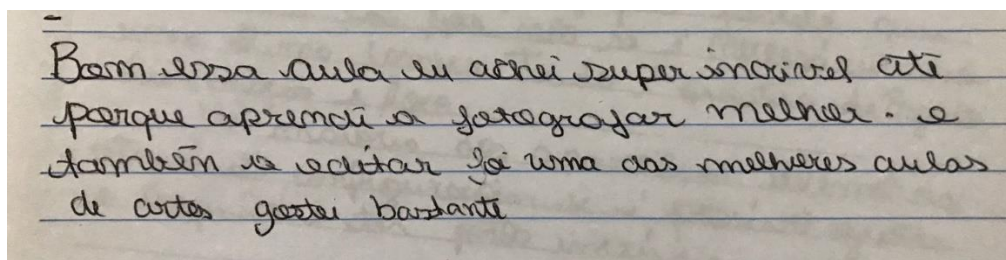 Bom essa aula eu achei super incrivel ate
porque aprendi a fotografar melhor. e
também a editar foi uma das melhores aulas
de artes gostei bastante